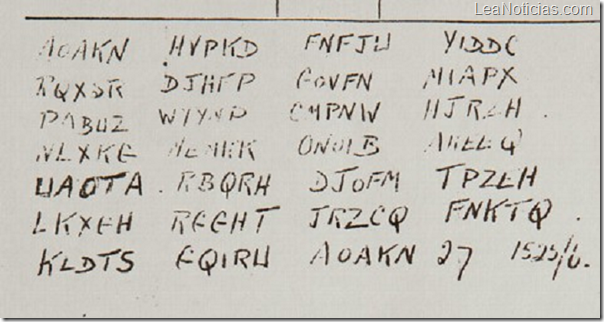 LeaNoticias.com
AOAKN HVPKD FNFJW YIDDC
RQXSR DJHFP GOVFN MIAPX
PABUZ WYYNP CMPNW HJRZH
NLXKG MEMKK ONOIB AKEEQ
UAOTA RBQRH DJOFM TPZEH
LKXGH RGGHT JRZCQ FNKTQ
KLDTS GQIRU AOAKN 27 1525/6.